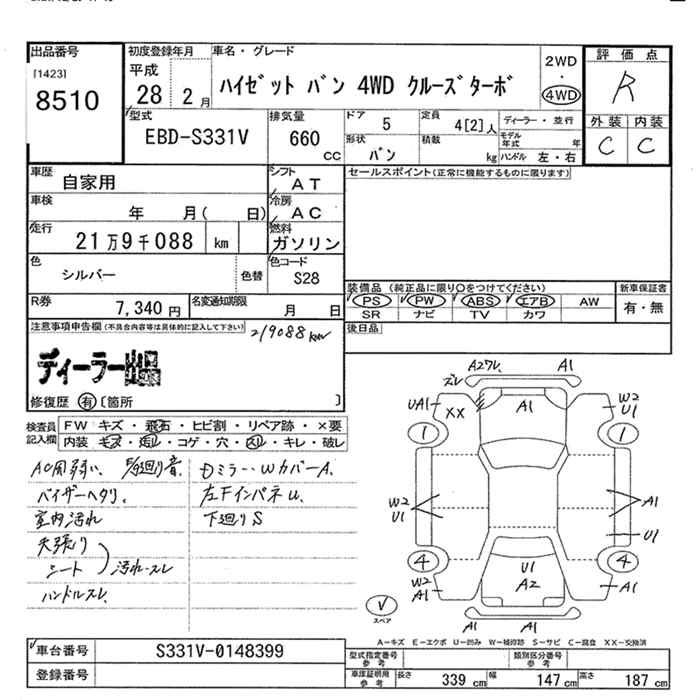 出品番号
[1423]
8510
初度登録年月
平成
28 2 月
車名・グレード
ハイゼット バン 4WD クルーズターボ
2WD
・
4WD
評価点
R
外装 内装
C C
型式
EBD-S331V
排気量
660
CC
ドア 5
定員 4[2]人
ディーラー・並行
モデル年式 年
形状 バン
積載 kg
ハンドル 左・右
車歴
自家用
シフト
AT
セールスポイント(正常に機能するものに限ります)
車検 年 月( 日)
冷房
AC
走行
21万9千088 km
燃料
ガソリン
色
シルバー
色替
色コード
S28
装備品 (純正品に限り○をつけてください)
新車保証書
PS PW ABS エアB AW
有・無
SR ナビ TV カワ
R券
7,340 円
名変通知期限
月 日
後日品
注意事項申告欄(不具合内容等は具体的に記入して下さい)
219088km
ディーラー出品
修復歴 有 〔箇所 〕
検査員記入欄
FW キズ・飛石・ヒビ割・リペア跡・×要
内装 キズ・汚れ・コゲ・穴・スレ・キレ・破レ
AC用弱い、
バイザーヘタリ、
室内汚れ
天張り
シート
汚れ・スレ
ハンドルスレ
Dミラー・WカバーA.
左FインパネU.
下廻りS
A2ワレ A1
ズレ
UA1
XX
A1
W2
U1
1 1
W2
U1
A1
U1
4 4
W2
A1
U1
A2
A1
A1 A1
スペア
A-キズ E-エクボ U-凹み W-補修跡 S-サビ C-腐食 XX-交換済
車台番号
S331V-0148399
登録番号
型式指定番号
参考
類別区分番号
参考
車庫証明用
参考
長さ 339 cm 幅 147 cm 高さ 187 cm